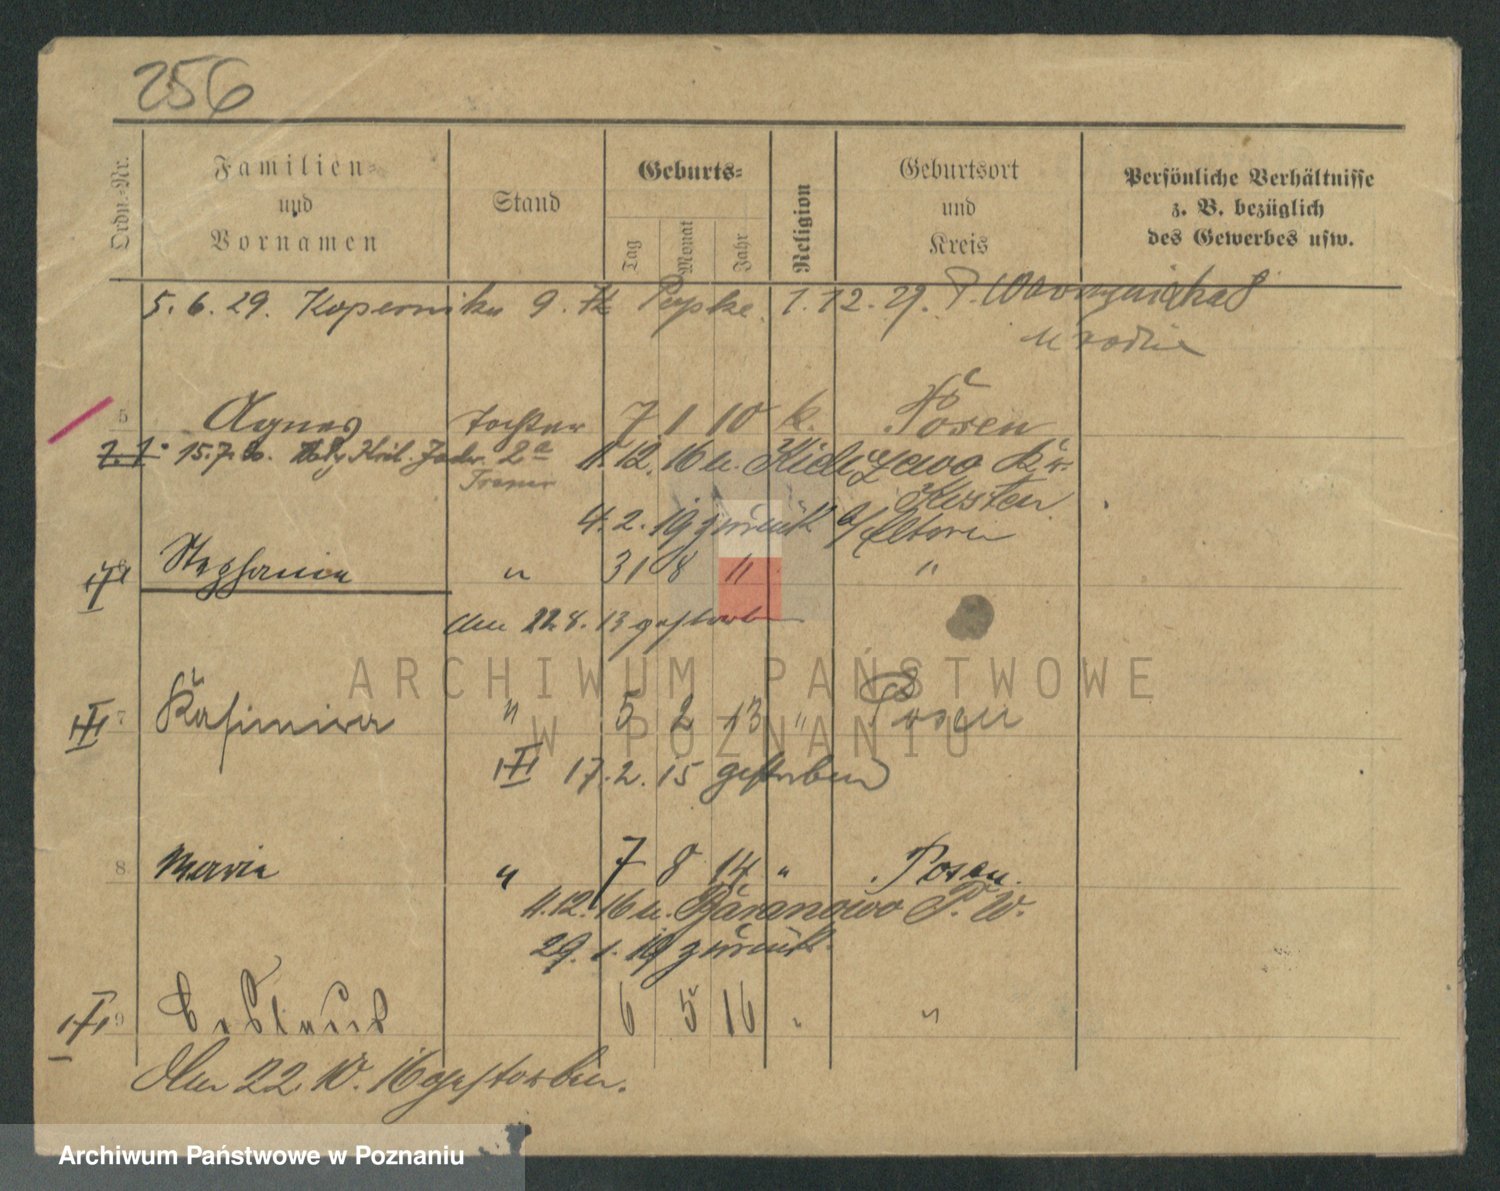 256
Ordn.-Nr.
Familien-
und
Vornamen
Stand
Geburts-
Tag
Monat
Jahr
Religion
Geburtsort
und
Kreis
Persönliche Verhältnisse
z. B. bezüglich
des Gewerbes usw.
5. 6. 29. Kopernika 9. Pepke. 1. 12. 29.
u rodz
5 Agnes Tochter 7 1 10 k. Posen
15.7. 2a 1.12. 16 u. Kr.
Kosten
4. 2. 19 zurück b/ Eltern
6 Stephanie " 31 8 11 "
den 22. 8. 13 gestorb
7 Kasimira " 5 2 13 " Posen
17. 2. 15 gestorben
8 Marie " 7 8 14 " Posen.
4.12. 16 u. Baranowo P. W.
29. 1. 19 zurück.
9 Boleslaus 6 5 16 " "
Den 22. 10. 16 gestorben.
ARCHIWUM PAŃSTWOWE
W POZNANIU
Archiwum Państwowe w Poznaniu